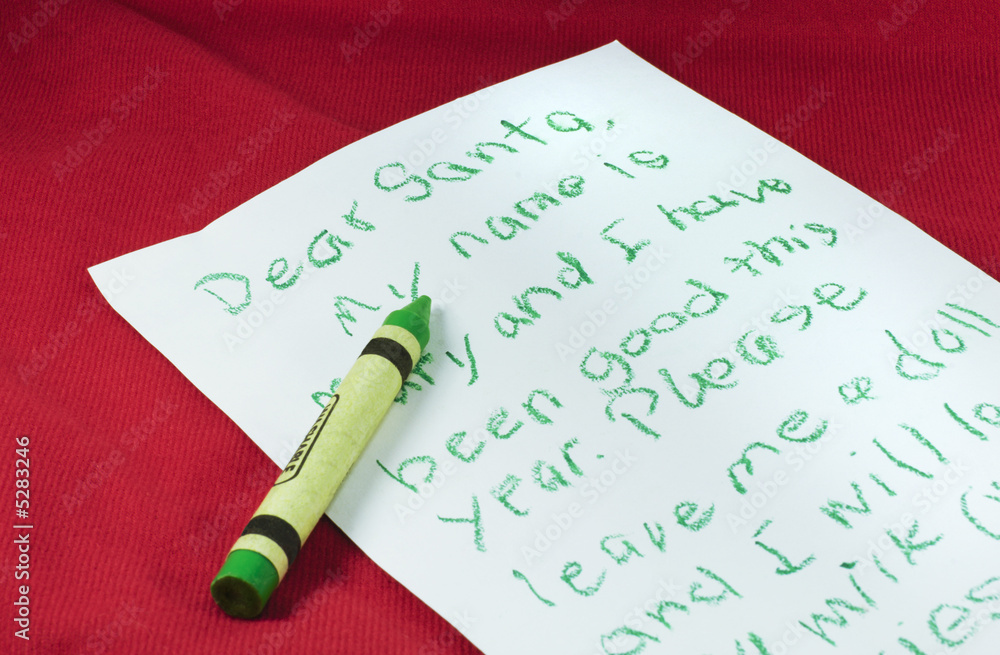 Dear Santa,
My name is
y and I have
been good this
year. Please
leave me a doll
and I will
milk
Adobe Stock | #5283246